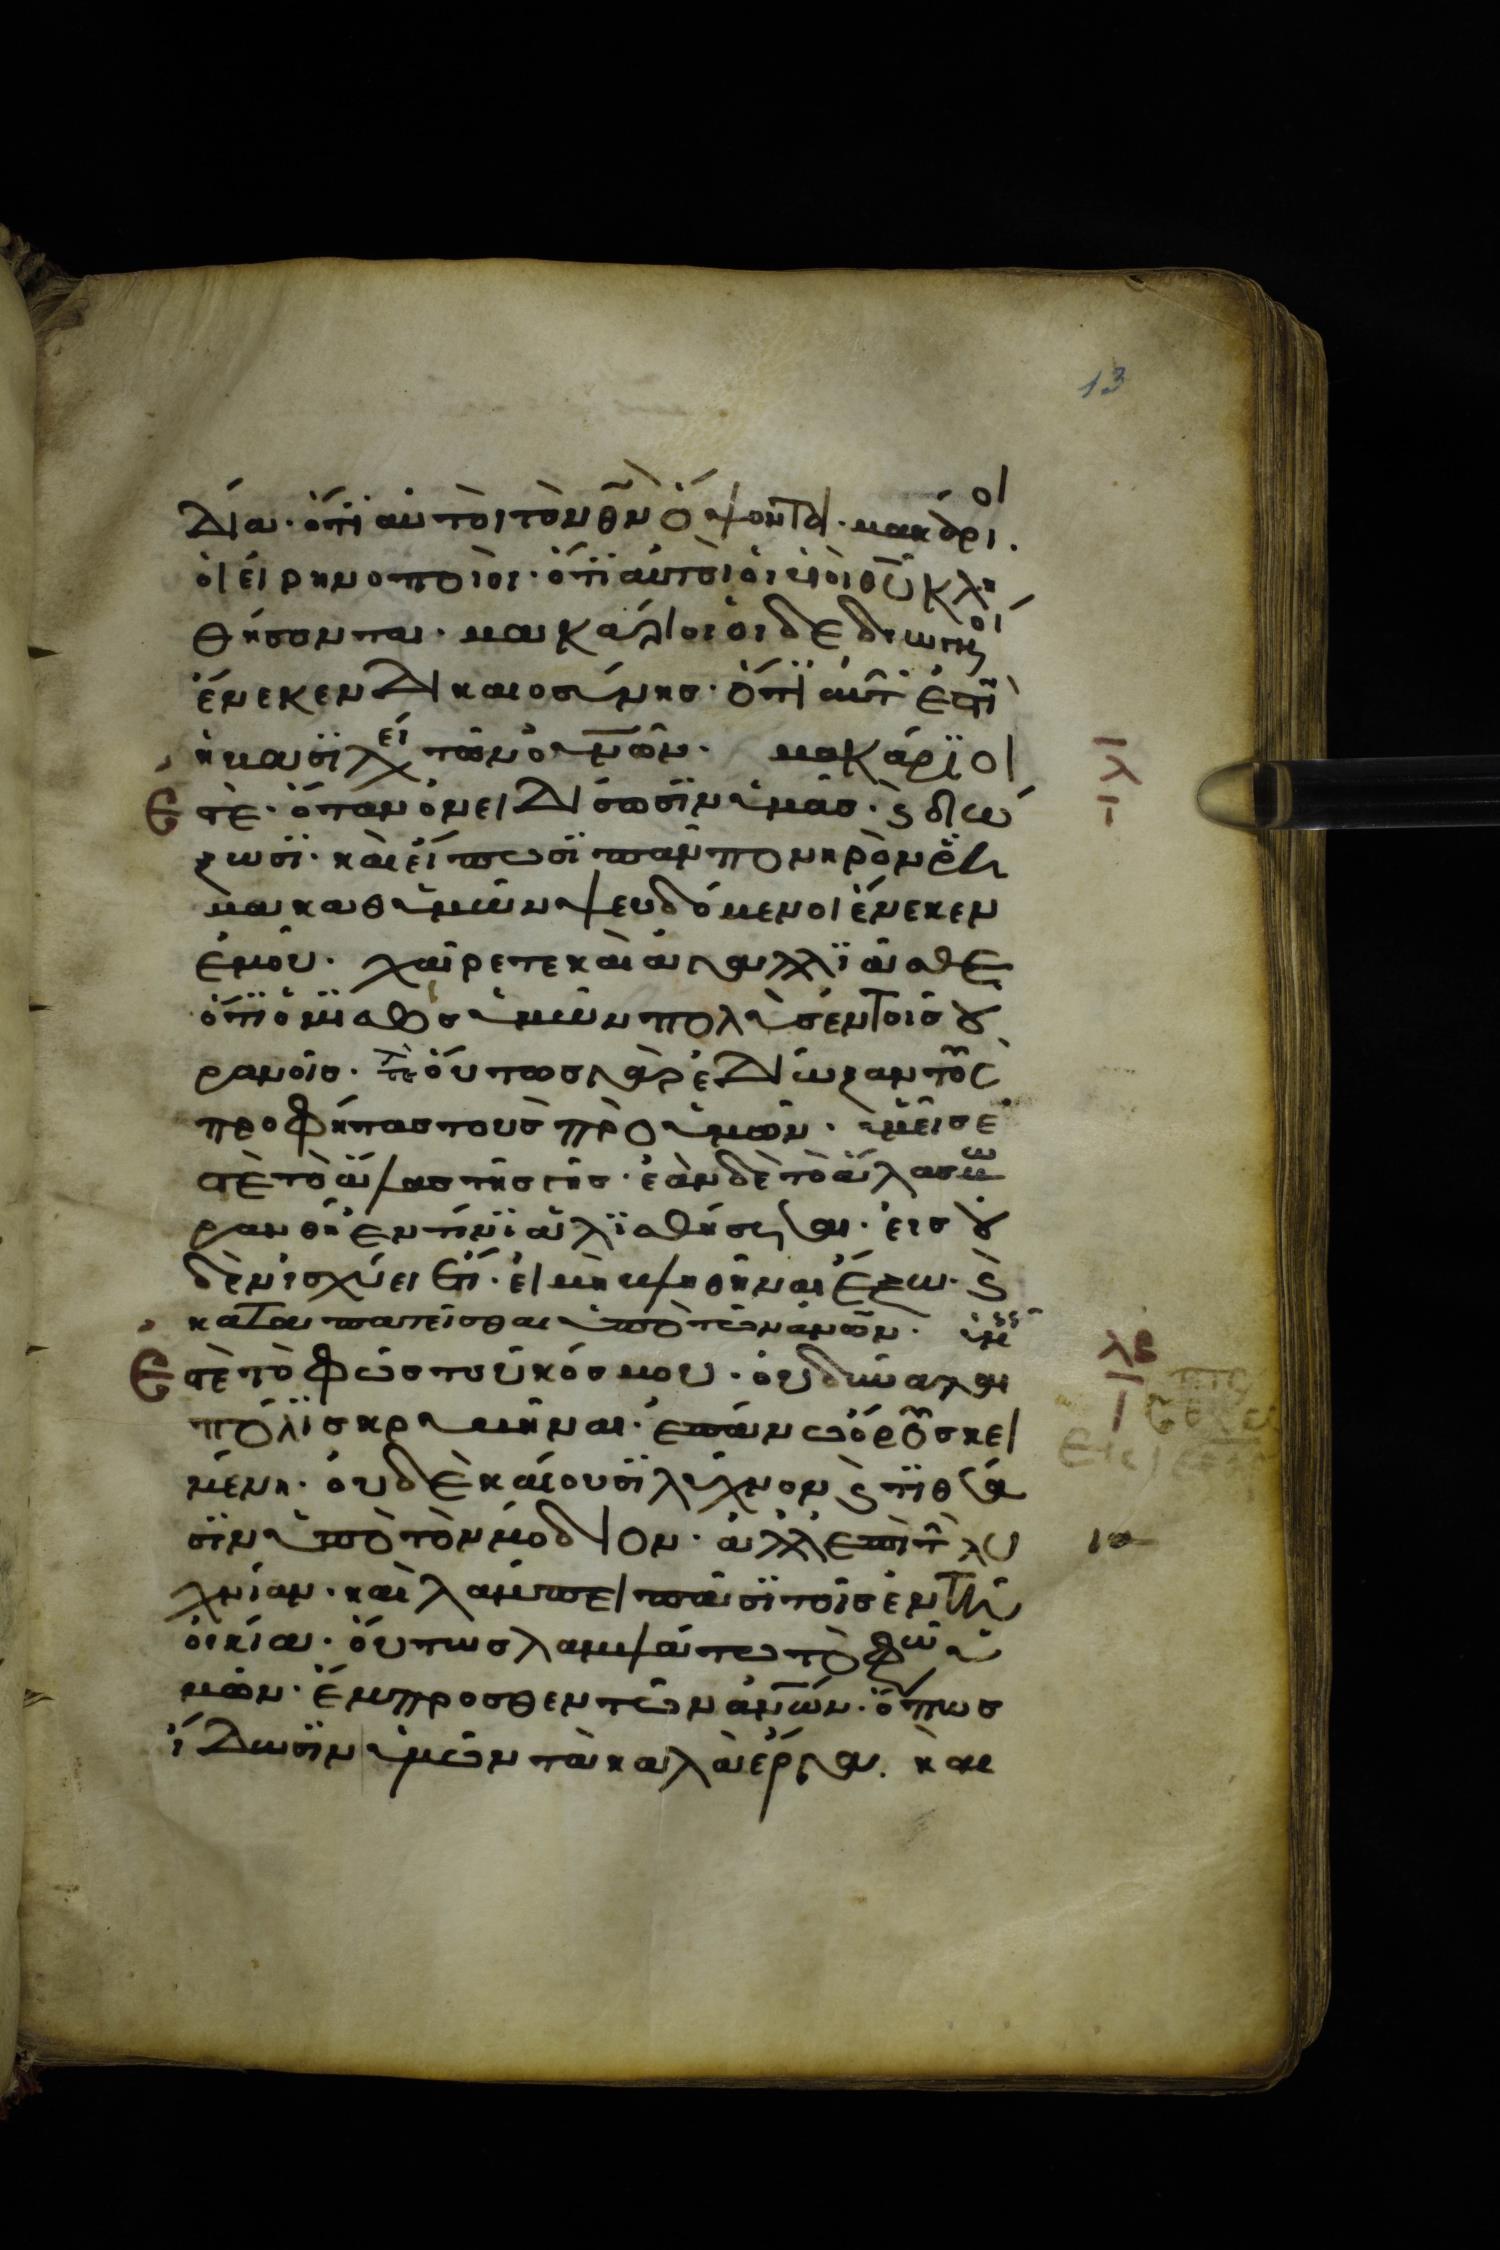 13
δία· ὅτι αὐτοὶ τὸν θν ὄψονται· μακάριοι
οἱ εἰρηνοποιοί· ὅτι αὐτοὶ υἱοὶ θυ κλη
θήσονται· μακάριοι οἱ δεδιωγμένοι
ἕνεκεν δικαιοσύνης· ὅτι αὐτῶν ἐστὶν
ἡ βασιλεία τῶν οὐνῶν· μακάριοι
λ
ι
ἐστὲ· ὅταν ὀνειδίσωσιν ὑμᾶς· καὶ διώ
ξωσι· καὶ εἴπωσι πᾶν πονηρὸν ῥῆ
μα καθ ὑμῶν ψευδόμενοι ἕνεκεν
ἐμοῦ· χαίρετε καὶ ἀγαλλιᾶσθε
ὅτι ὁ μισθὸς ὑμῶν πολὺς ἐν τοῖς οὐ
ρανοῖς· οὕτως γὰρ ἐδίωξαν τοὺς
προφήτας τοὺς πρὸ ὑμῶν· ὑμεῖς ἐ
στὲ τὸ ἅλας τῆς γῆς· ἐὰν δὲ τὸ ἅλας μω
ρανθῆ ἐν τίνι ἁλισθήσεται· εἰς οὐ
δὲν ἰσχύει ἔτι· εἰ μὴ βληθῆναι ἔξω· καὶ
καταπατεῖσθαι ὑπὸ τῶν ἀνῶν· ὑμεῖς
λβ
ι
ἐστὲ τὸ φῶς τοῦ κόσμου· οὐ δύναται
πόλις κρυβῆναι· ἐπάνω ὄρους κει
μένη· οὐδὲ καίουσι λύχνον καὶ τιθέα
σιν ὑπὸ τὸν μόδιον· ἀλλ ἐπὶ τὴν λυ
χνίαν· καὶ λάμπει πᾶσι τοῖς ἐν τῆ
οἰκία· οὕτως λαμψάτω τὸ φῶς ὑ
μῶν· ἔμπροσθεν τῶν ἀνῶν· ὅπως
ἴδωσιν ὑμῶν τὰ καλὰ ἔργα. καὶ